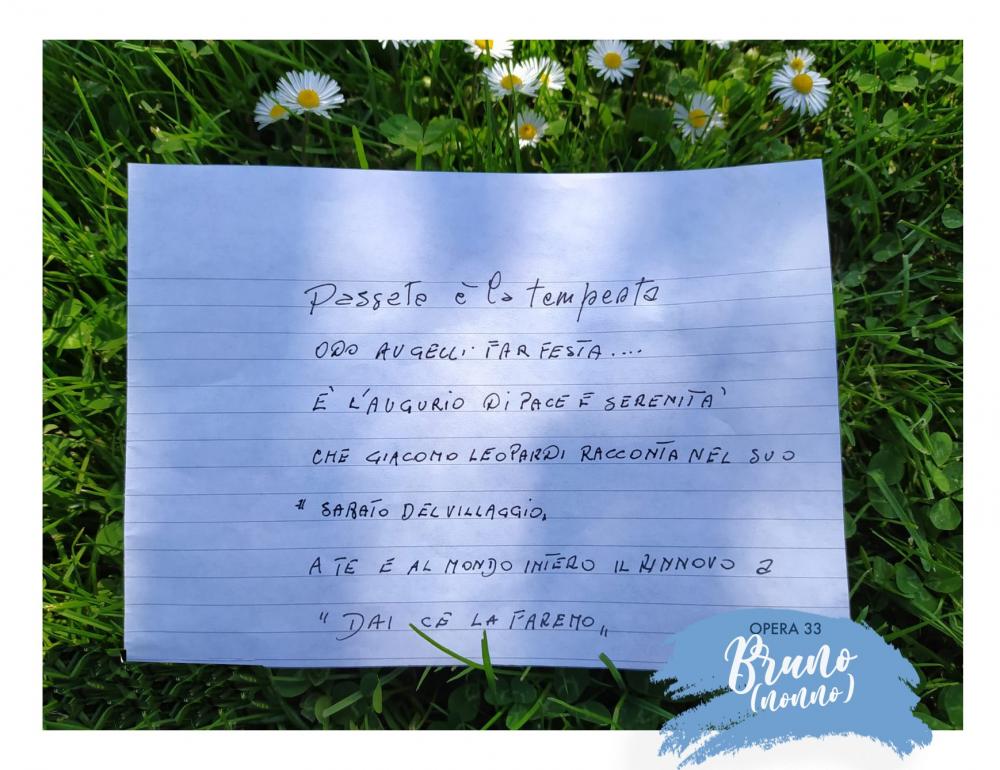 Passata è la tempesta
ODO AUGELLI FAR FESTA....
È L'AUGURIO DI PACE E SERENITA'
CHE GIACOMO LEOPARDI RACCONTA NEL SUO
" SABATO DEL VILLAGGIO„
A TE E AL MONDO INTERO IL RINNOVO a
" DAI CE LA FAREMO „
OPERA 33
Bruno
(nonno)